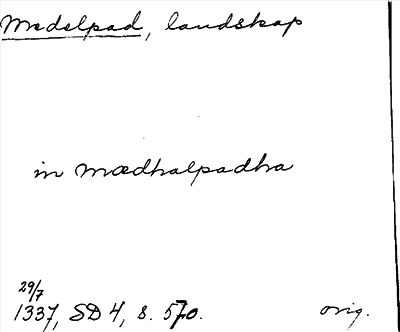 Medelpad, landskap
in Mædhalpadha
29/7
1337, SD 4, s. 570. orig.